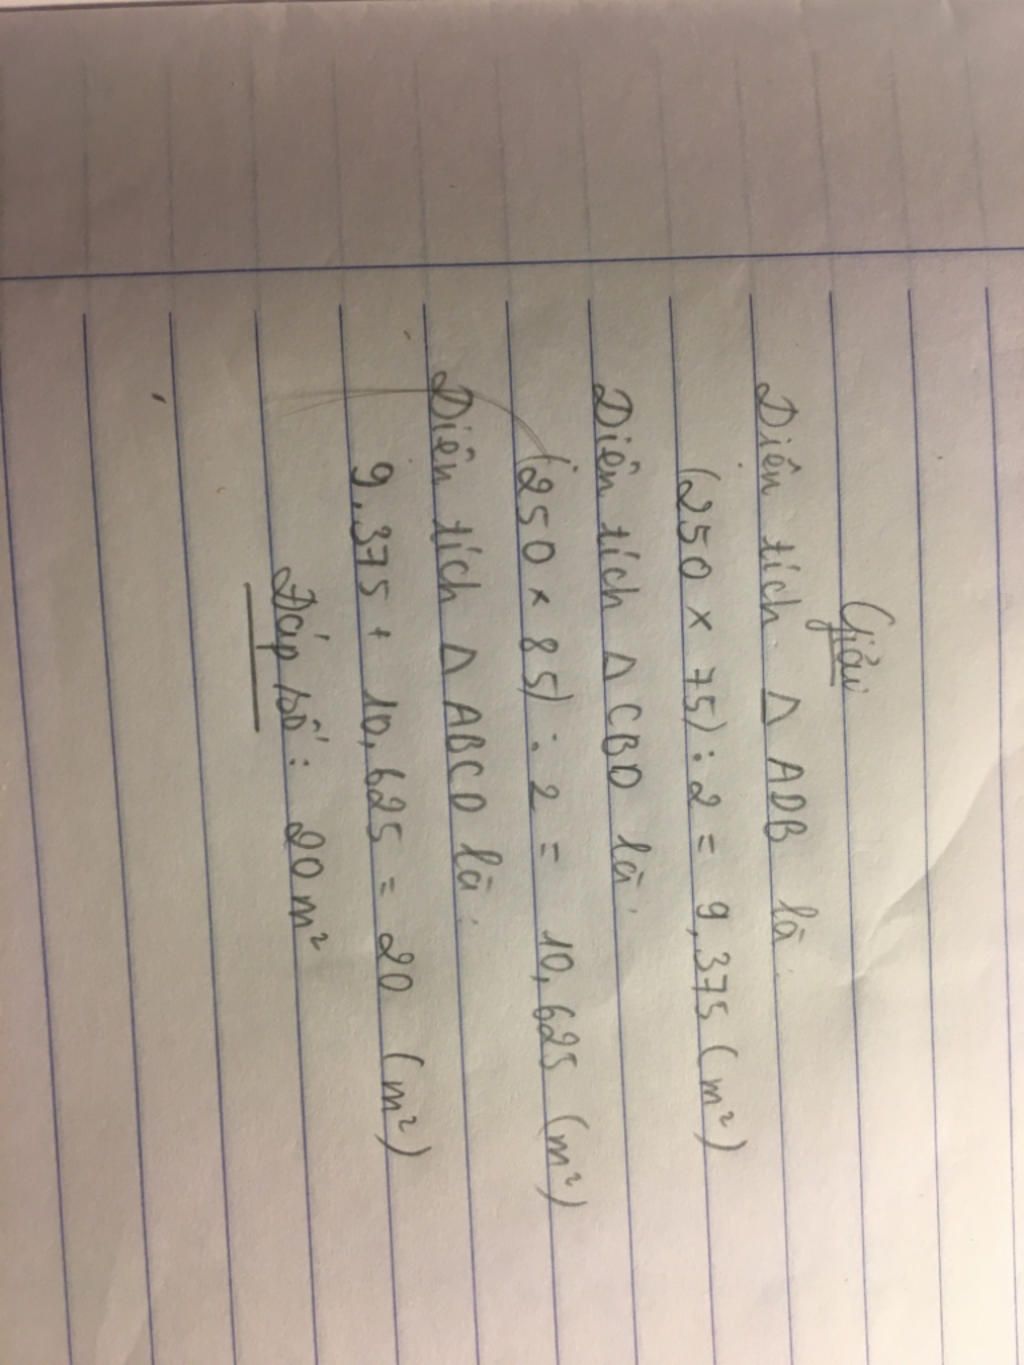 Giải
Diện tích Δ ADB là
(250 x 75) : 2 = 9,375 (m²)
Diện tích Δ CBD là:
(250 x 85) : 2 = 10,625 (m²)
Diện tích Δ ABCD là:
9,375 + 10,625 = 20 (m²)
Đáp số: 20 m²